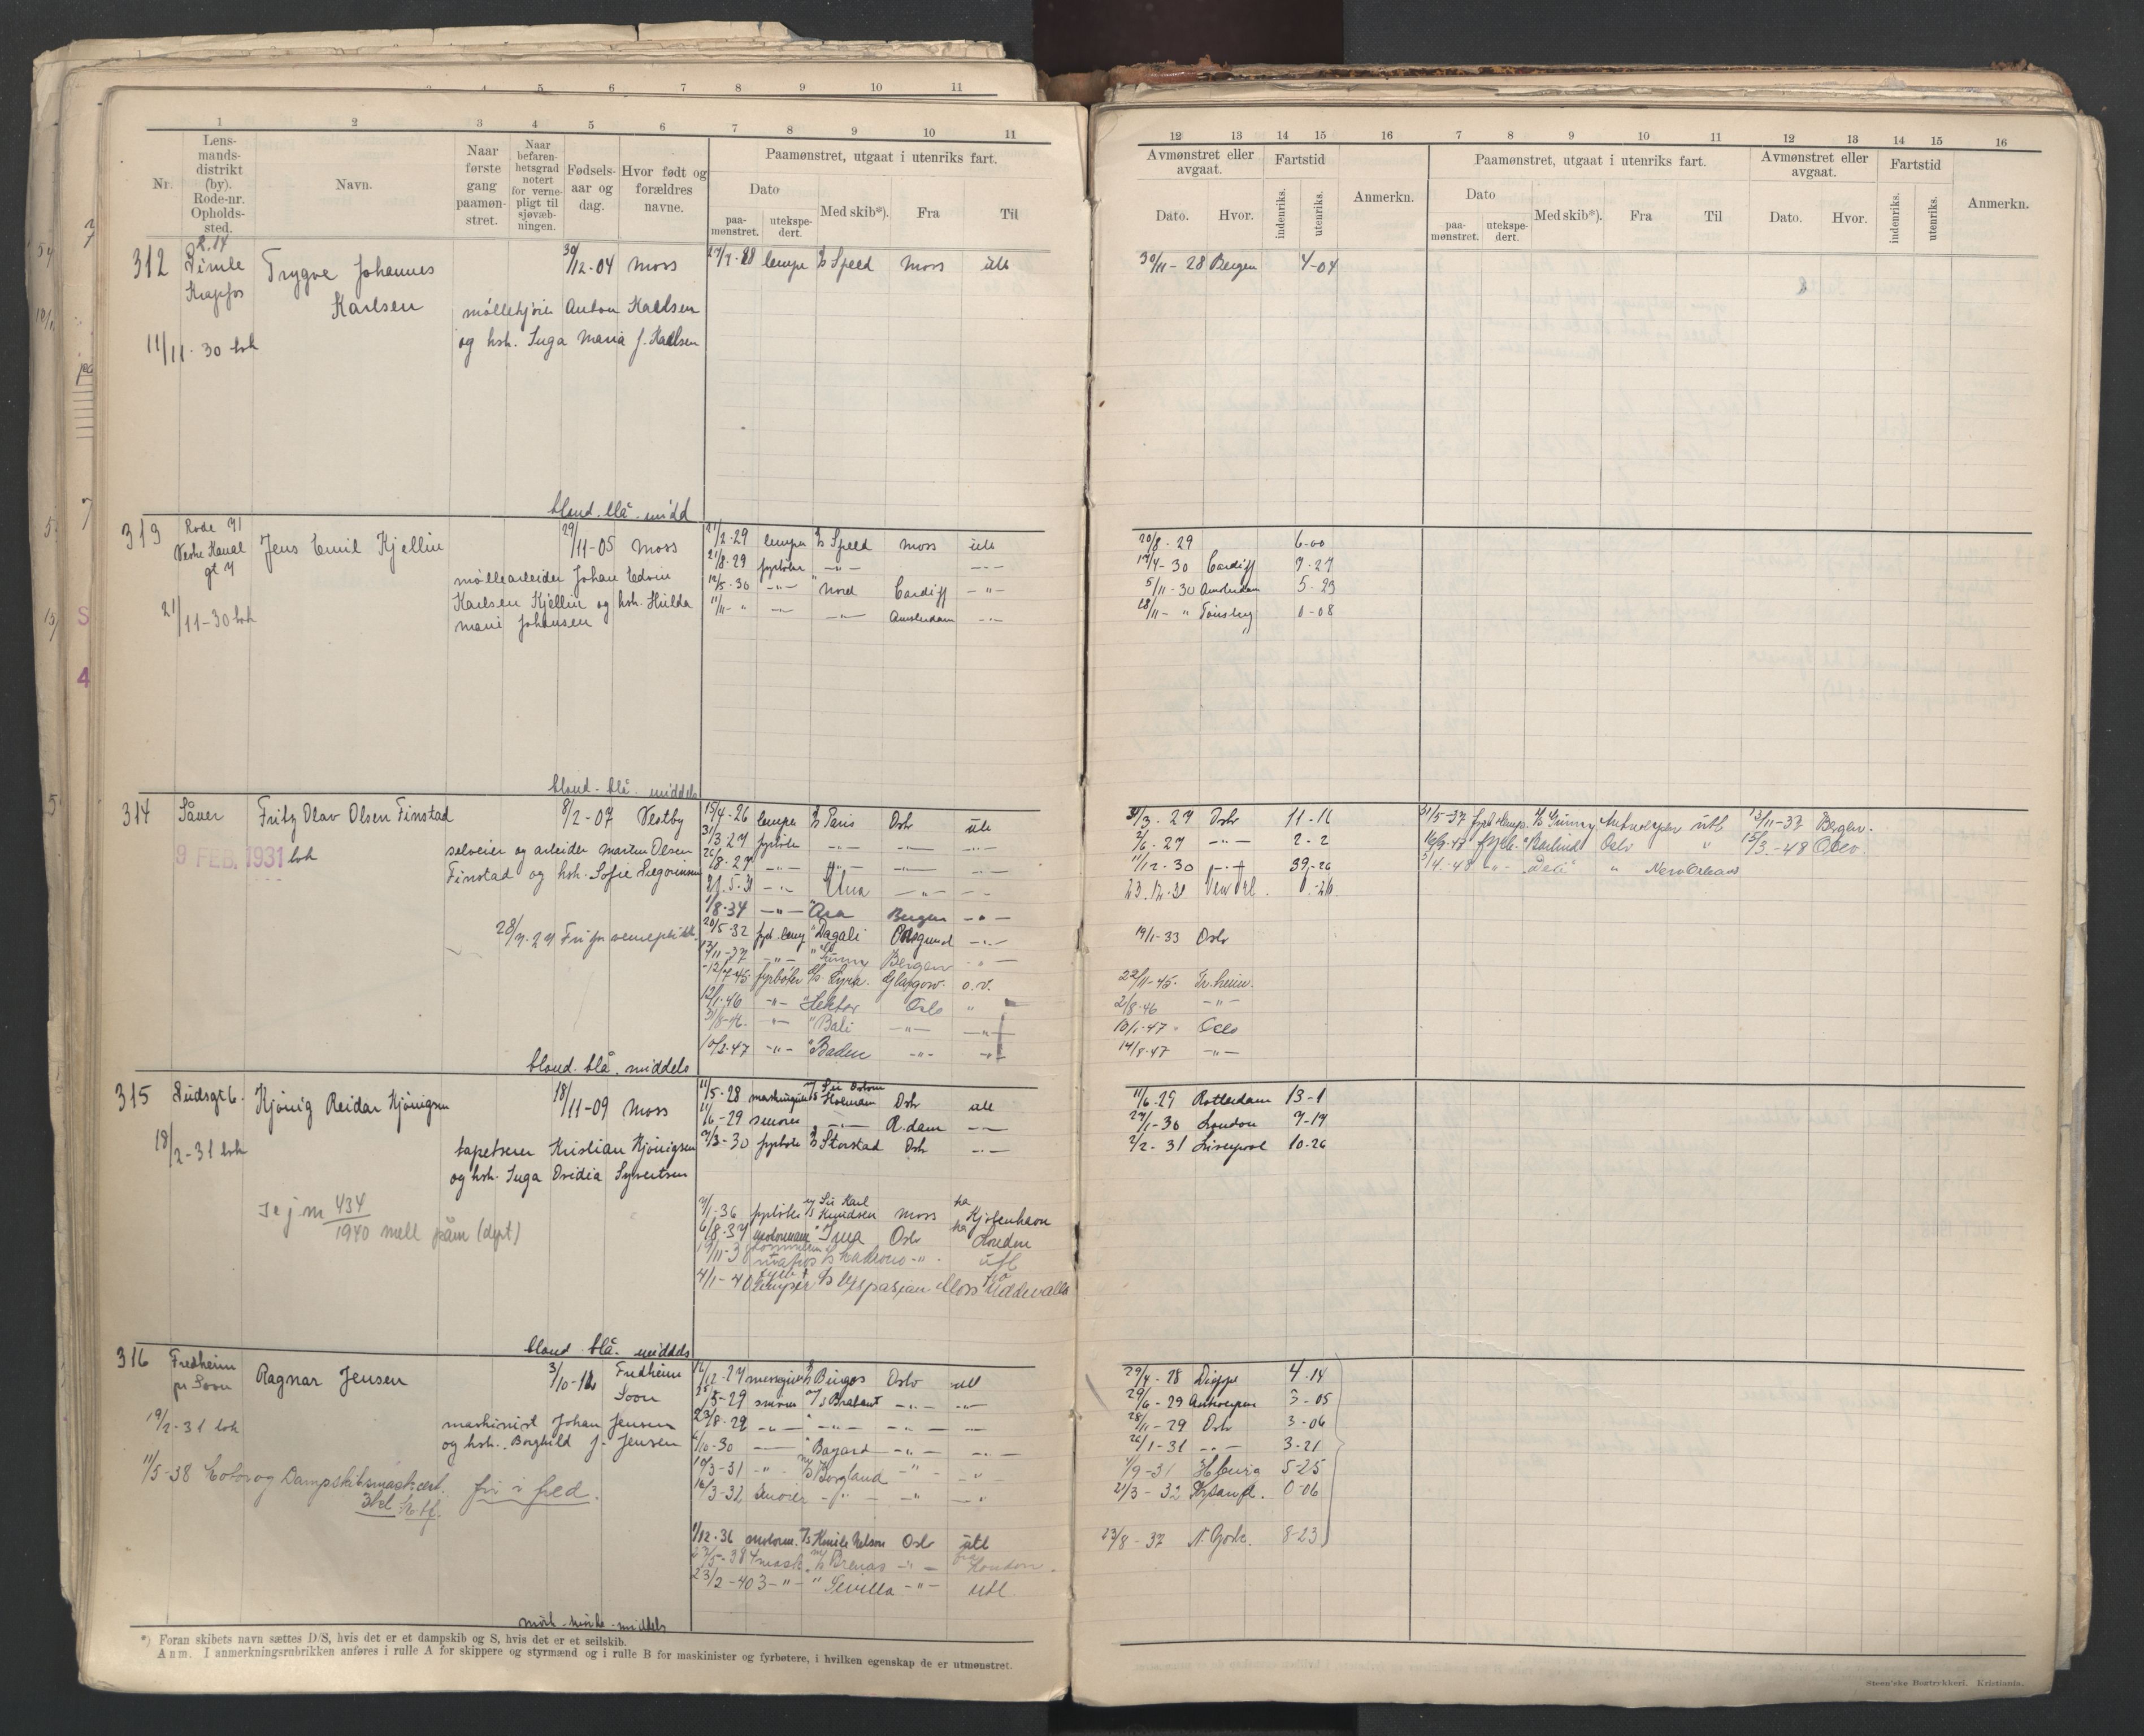 1 2 3 4 5 6 7 8 9 10 11
Nr. Lensmandsdistrikt (by). Rode-nr. Opholdssted. Navn. Naar første gang paamønstret. Naar befarenhetsgrad notert for vernepligt til sjøvæbningen. Fødselsaar og dag. Hvor født og forældres navne.
Paamønstret, utgaat i utenriks fart.
Dato Med skib*). Fra Til
paamønstret. utekspedert.
12 13 14 15 16 7 8 9 10 11 12 13 14 15 16
Avmønstret eller avgaat. Fartstid Anmerkn. Paamønstret, utgaat i utenriks fart. Avmønstret eller avgaat. Fartstid Anmerkn.
Dato. Hvor. indenriks. utenriks. Dato paamønstret. utekspedert. Med skib*). Fra Til Dato. Hvor. indenriks. utenriks.
312 R. 14 Krapfos Trygve Johannes Karlsen 30/12-04 Moss
møllekjører Anton Karlsen
og hsh. Inga Maria J. Karlsen
11/11-30 boh
Speed Moss utl 30/11-28 Bergen 4-04
blond. blå. midd
313 Rode 71 Vestre Kanal gt 7 Jens Emil Kjellin 29/11-05 Moss
møllearbeider Johan Edvin
Karlsen Kjellin og hsh. Hulda
Marie Johansen
21/11-30 boh
21/2-29 lemper Speed Moss utl 20/8-29 6-00
21/8-29 fyrbøter -"- -"- 17/4-30 Cardiff 7-27
12/5-30 -"- " Nord Cardiff -"- 5/11-30 Amsterdam 5-23
11/11- " -"- -"- Amsterdam -"- 28/11- " Tønsberg 0-08
blond. blå. middels
314 Såner Fritz Olav Olsen Finstad 8/2-07 Vestby
9 FEB. 1931 boh
selveier og arbeider Martin Olsen
Finstad og hsh. Sofie
28/7.27 Fri for verneplikt
15/4-26 lemper Paris Oslo utl 31/3-27 Oslo 11-16
31/3-27 fyrbøter -"- -"- -"- 2/6-27 -"- 2-2
26/8-27 -"- -"- -"- 11/12-30 -"- 39-26
29.5.31 -"- -"- -"- 23.12.31 0-26
1/8-34 -"- "Ara Bergen -"-
20/5-32 "Dagali Porsgrund -"- 19/1-33 Oslo
13/11-37 -"- " Gunny Bergen -"-
12/7-45 fyrbøter Lyra. Glasgow. o.v. 22/11-45. Tr.heim.
12/1-46 -"- "Hektor Oslo " 21/8-46 -"-
31/8-46. -"- "Bali -"- -"- 10/1-47 Oslo
10/2-47 -"- "Baden -"- -"- 14/8-47 -"-
31/5-37 Gunny Antwerpen utl 13/11-37 Bergen.
Oslo " 15/3-48 Oslo.
3/4-48 -"- " New Orleans
blond. blå. middels
315 Kjönig Reidar Kjönigsen 18/11-09 Moss
tapetserer Kristian Kjönigsen
og hsh. Inga Ovidia Syvertsen
18/2-31 boh
Se j nr 434/1940
11/5-28 Oslo utl 11/6-29 Rotterdam 13-1
11/6-29 smører -"- R.dam -"- 27/1-30 London 7-17
7/3-30 fyrbøter Storstad Oslo -"- 2/2-31 Liverpool 10-26
7/1-36 fyrbøter Sir Karl Knudsen Moss fra Kjøbenhavn
6/8-37 motormann Oslo fra London
utl
4/1-40 lemper Vespasian Moss fra Uddevalla
blond. blå. middels
316 Fredheim pr Soon Ragnar Jensen 3/10-12 Fredheim Soon
maskinist Johan Jensen
og hsh. Borghild J. Jensen
19/2-31 boh
11/5-38 Motor og Dampskibsmask.cert. fri i fred.
Oslo utl 29/4-28 Dieppe 4-14
25/3-29 smører Brabant -"- -"- 29/6-29 Antwerpen 3-05
23/8-29 -"- -"- -"- -"- 28/11-29 Oslo 3-06
6/10-30 -"- "Bayard -"- -"- 26/1-31 -"- 3-21
10/3-31 -"- Borgland -"- -"- 1/9-31 H.burg 5-25
16/3-32 smører -"- -"- -"- 21/3-32 0-06
1/12-36 motorm. Knute Nelson Oslo utl 23/8-37 8-23
27/5-38 4 mask. Brenas -"- fra London.
23/2-40 3-"- " Sevilla -"- utl
mørk - mørke - middels
*) Foran skibets navn sættes D/S, hvis det er et dampskib og S, hvis det er et seilskib.
Anm. I anmerkningsrubrikken anføres i rulle A for skippere og styrmænd og i rulle B for maskinister og fyrbøtere, i hvilken egenskap de er utmønstret.
Steen'ske Bogtrykkeri. Kristiania.